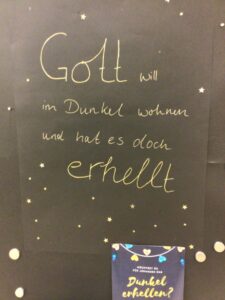 Gott will
im Dunkel wohnen
und hat es doch
erhellt
Möchtest du
Dunkel
erhellen?